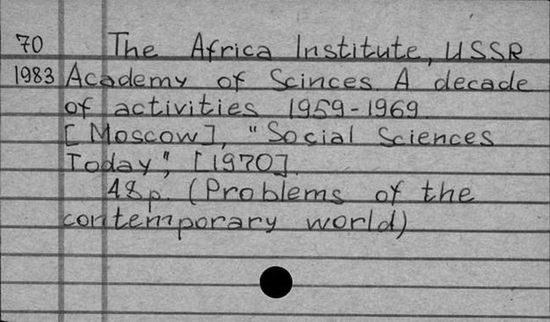 70 The Africa Institute, USSR
1983 Academy of Scinces. A decade
of activities 1959-1969.
[Moscow], "Social Sciences
Today", [1970].
48p. (Problems of the
contemporary world)